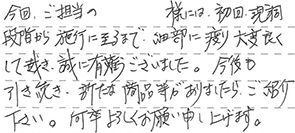 今回、ご担当の　　　様には、初回、現調
段階から施行に至るまで、細部に渡り大変良く
して戴き、誠に有難うございました。今後も
引き続き、新たな商品等がありましたら、ご紹介
下さい。何卒よろしくお願い申し上げます。